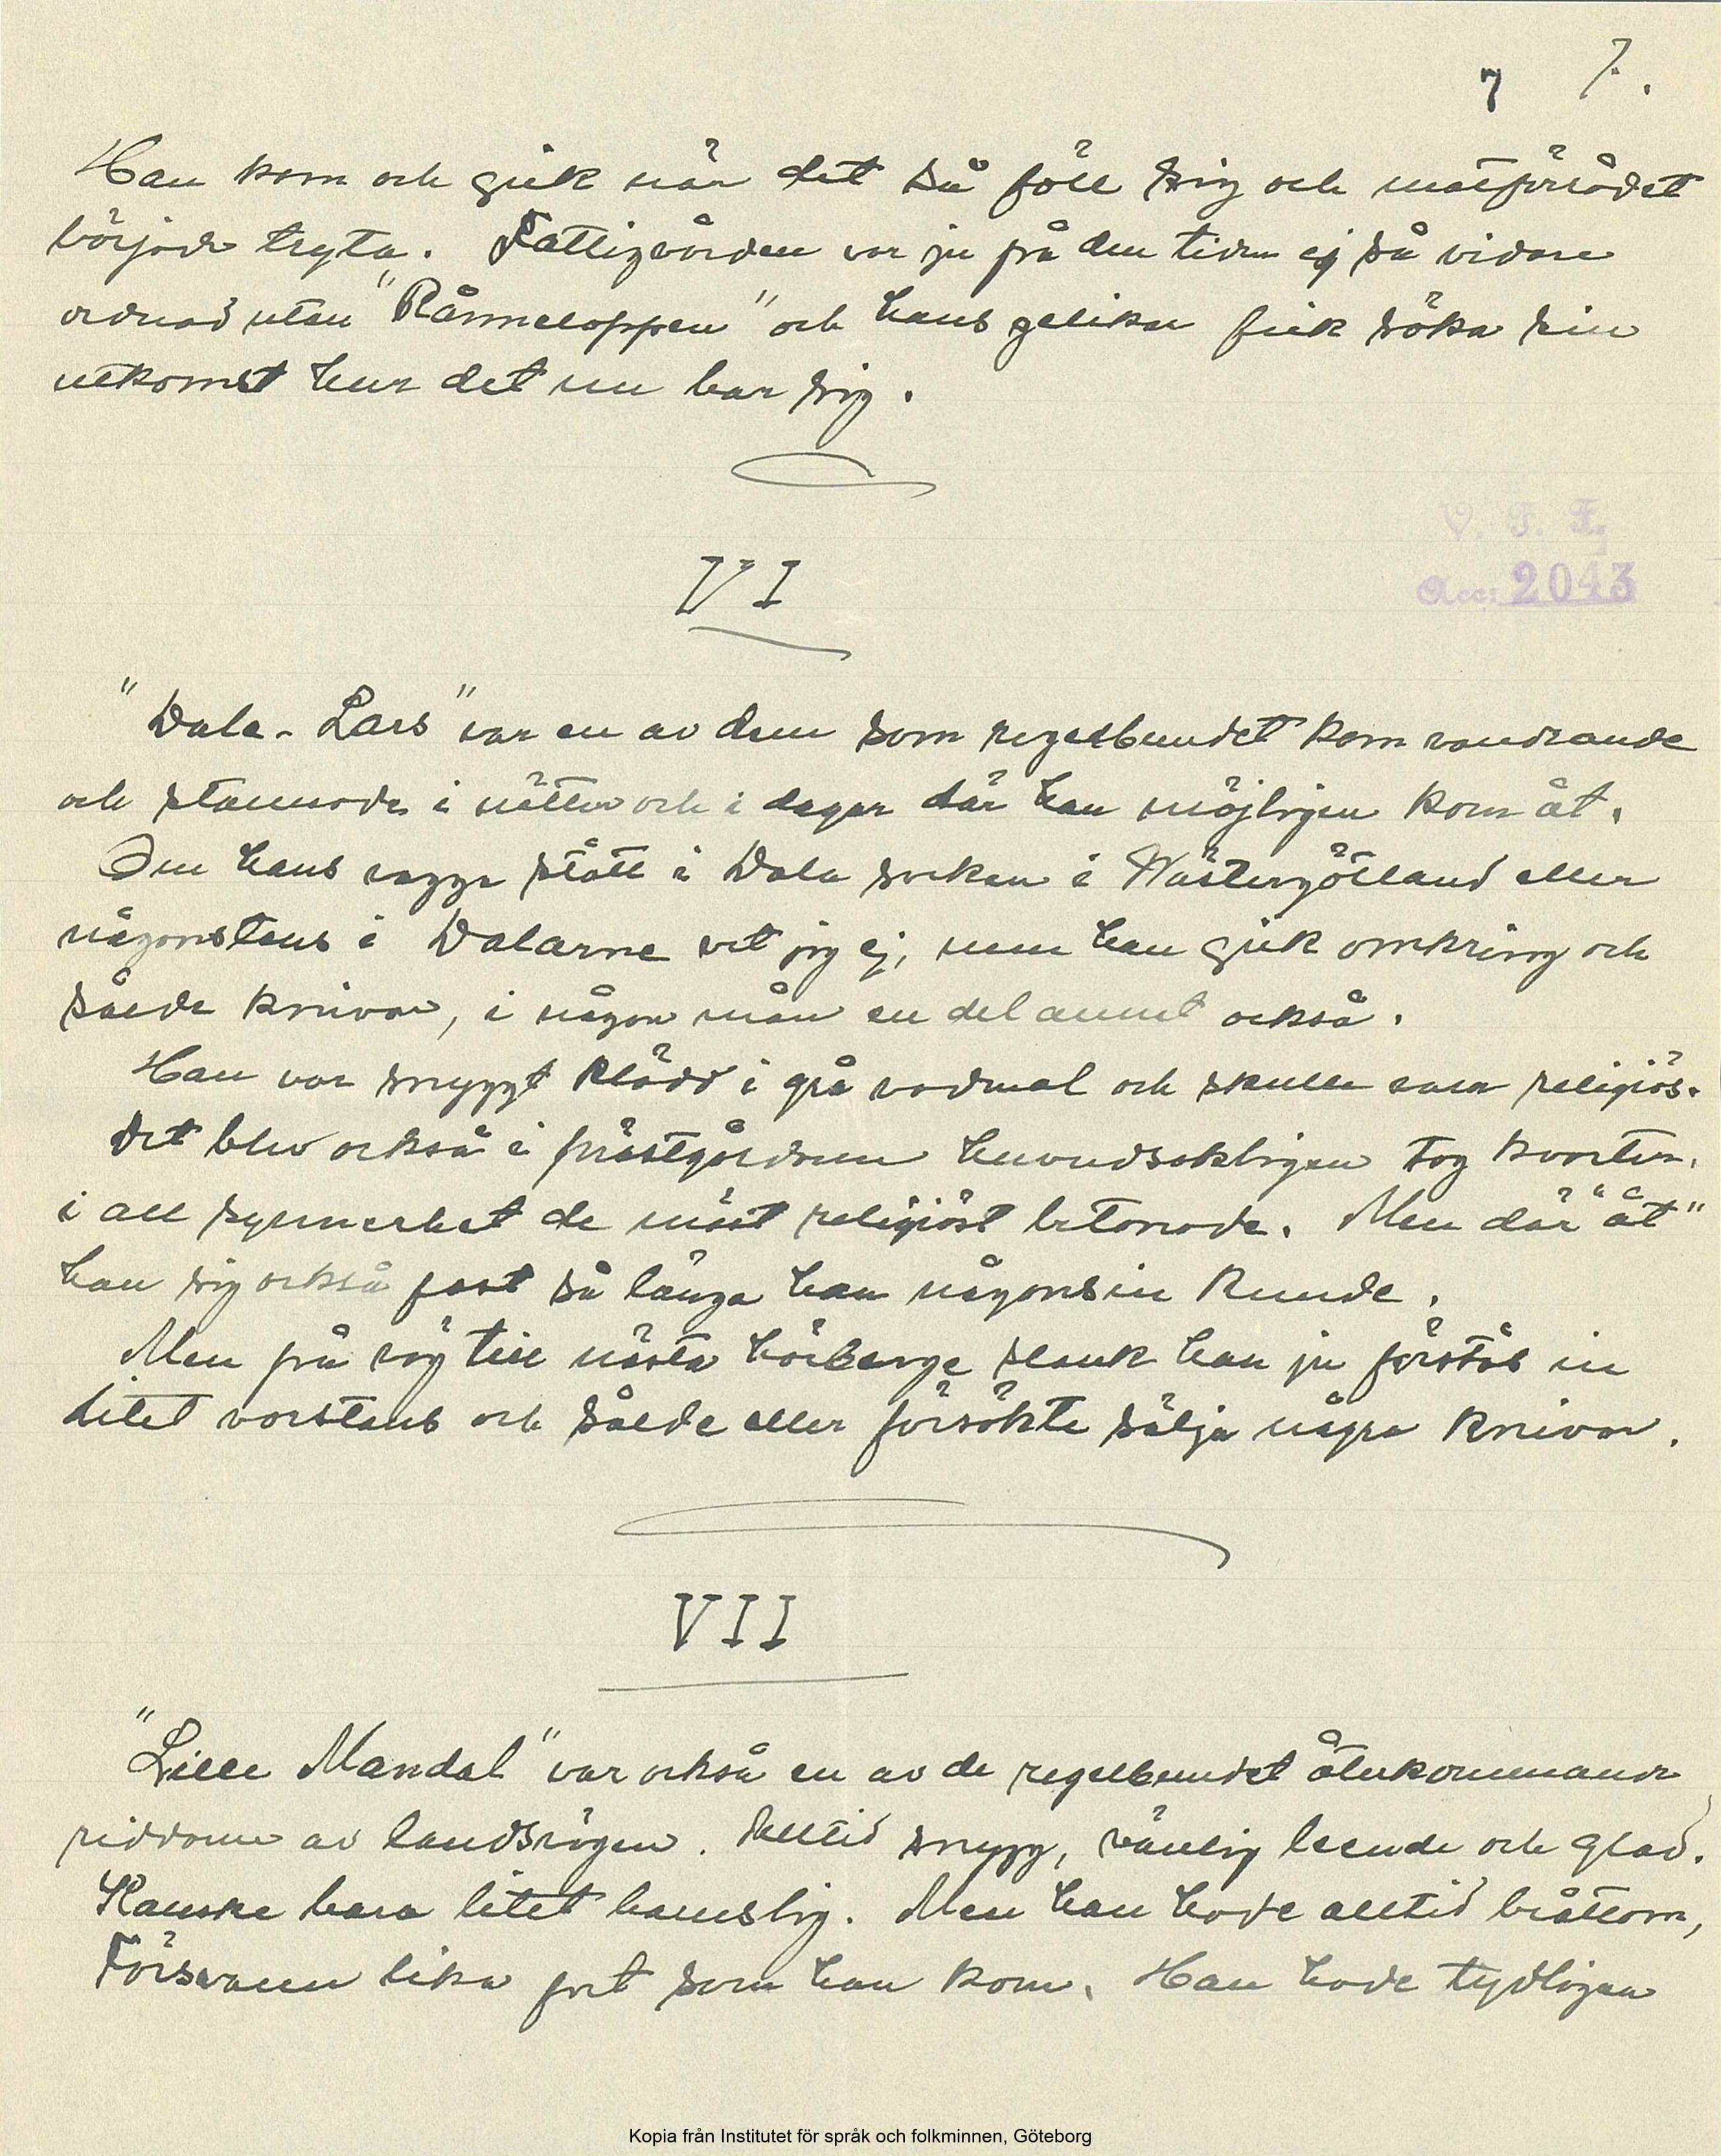 7 7.
Han kom och gick när det så föll sig och matförrådet
började tryta. Fattigvården var ju på den tiden ej så vidare
ordnad utan "Rånneloppen" och hans gelikar fick söka sin
utkomst hur det nu bar sig.
V. F. F.
Acc: 2043
VI
"Dala-Lars" var en av dem som regelbundet kom vandrande
och stannade i nätter och i dagar där han möjligen kom åt.
Om hans vagga stått i Dala socken i Wästergötland eller
någonstans i Dalarne vet jag ej, men han gick omkring och
sålde knivar, i någon mån en del annat också.
Han var snyggt klädd i grå vadmal och skulle vara religiös.
Det blev också i prästgårdarne huvudsakligen tog kvarter,
i all synnerhet de mest religiöst betonade. Men där "åt"
han sig också fast så länge han någonsin kunde.
Men på väg till nästa härberge slank han ju förstås in
litet varstans och sålde eller försökte sälja några knivar.
VII
"Lille Mandal" var också en av de regelbundet återkommande
riddarne av landsvägen. Alltid snygg, vänlig leende och glad.
Kanske bara litet barnslig. Men han hade alltid bråttom,
Försvann lika fort som han kom. Han hade tydligen
Kopia från Institutet för språk och folkminnen, Göteborg